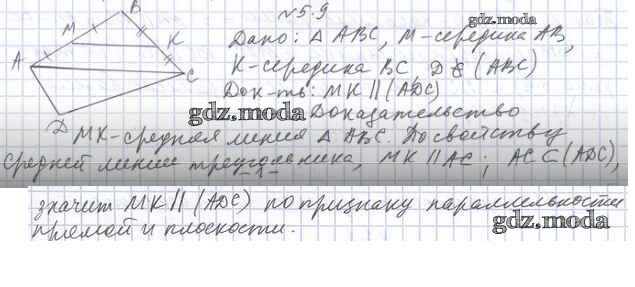 №5.9
gdz.moda
Дано: Δ ABC, M-середина AB,
K-середина BC, D ∉ (ABC)
Док-ть: MK || (ADC)
gdz.moda Доказательство
MK-средняя линия Δ ABC. По свойству
средней линии треугольника, MK || AC; AC ⊂ (ADC),
значит MK || (ADC) по признаку параллельности
прямой и плоскости.
gdz.moda
B
M
K
A
C
D